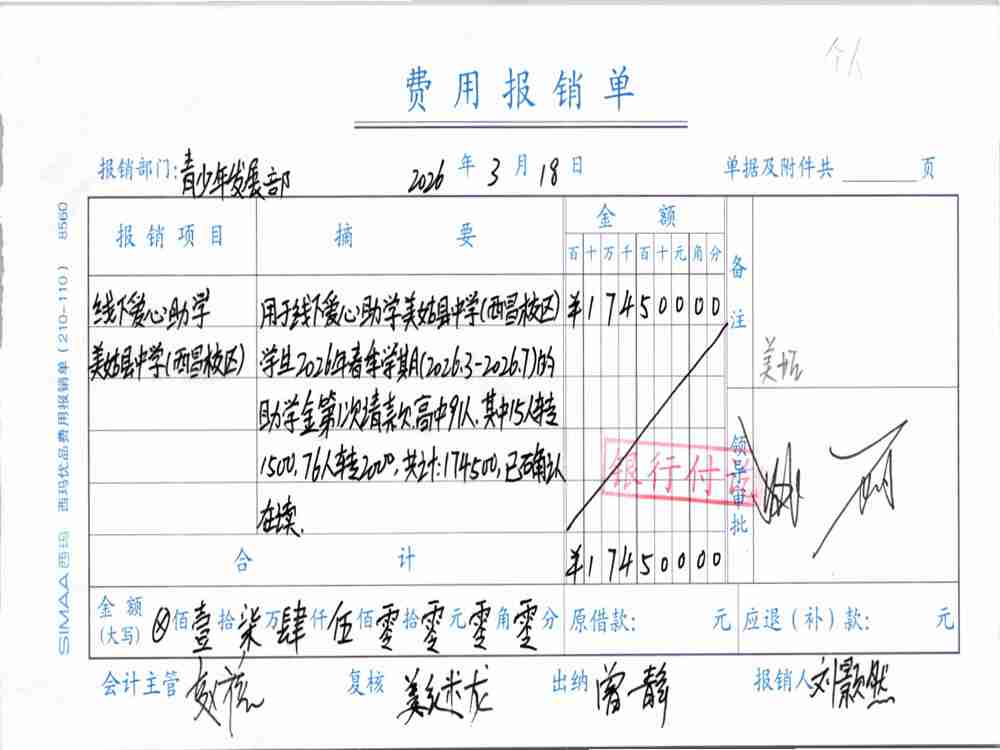 个人
费用报销单
报销部门:青少年发展部 2026年3月18日 单据及附件共 页
报销项目 摘要 金额 备注
百十万千百十元角分
线下爱心助学 用于线下爱心助学美姑县中学(西昌校区) ¥17450000
美姑县中学(西昌校区) 学生2026年春季学期(2026.3-2026.7)的
助学金第1次请款,高中91人,其中15人转
1500,76人转2000,共计:174500,已确认
在读.
美姑
银行付讫
领导审批
合计 ¥17450000
金额(大写) ⊗佰壹拾柒万肆仟伍佰零拾零元零角零分 原借款: 元 应退(补)款: 元
会计主管 复核 出纳 曾静 报销人 刘颢然
SIMAA西玛 西玛优品费用报销单(210-110) 8560